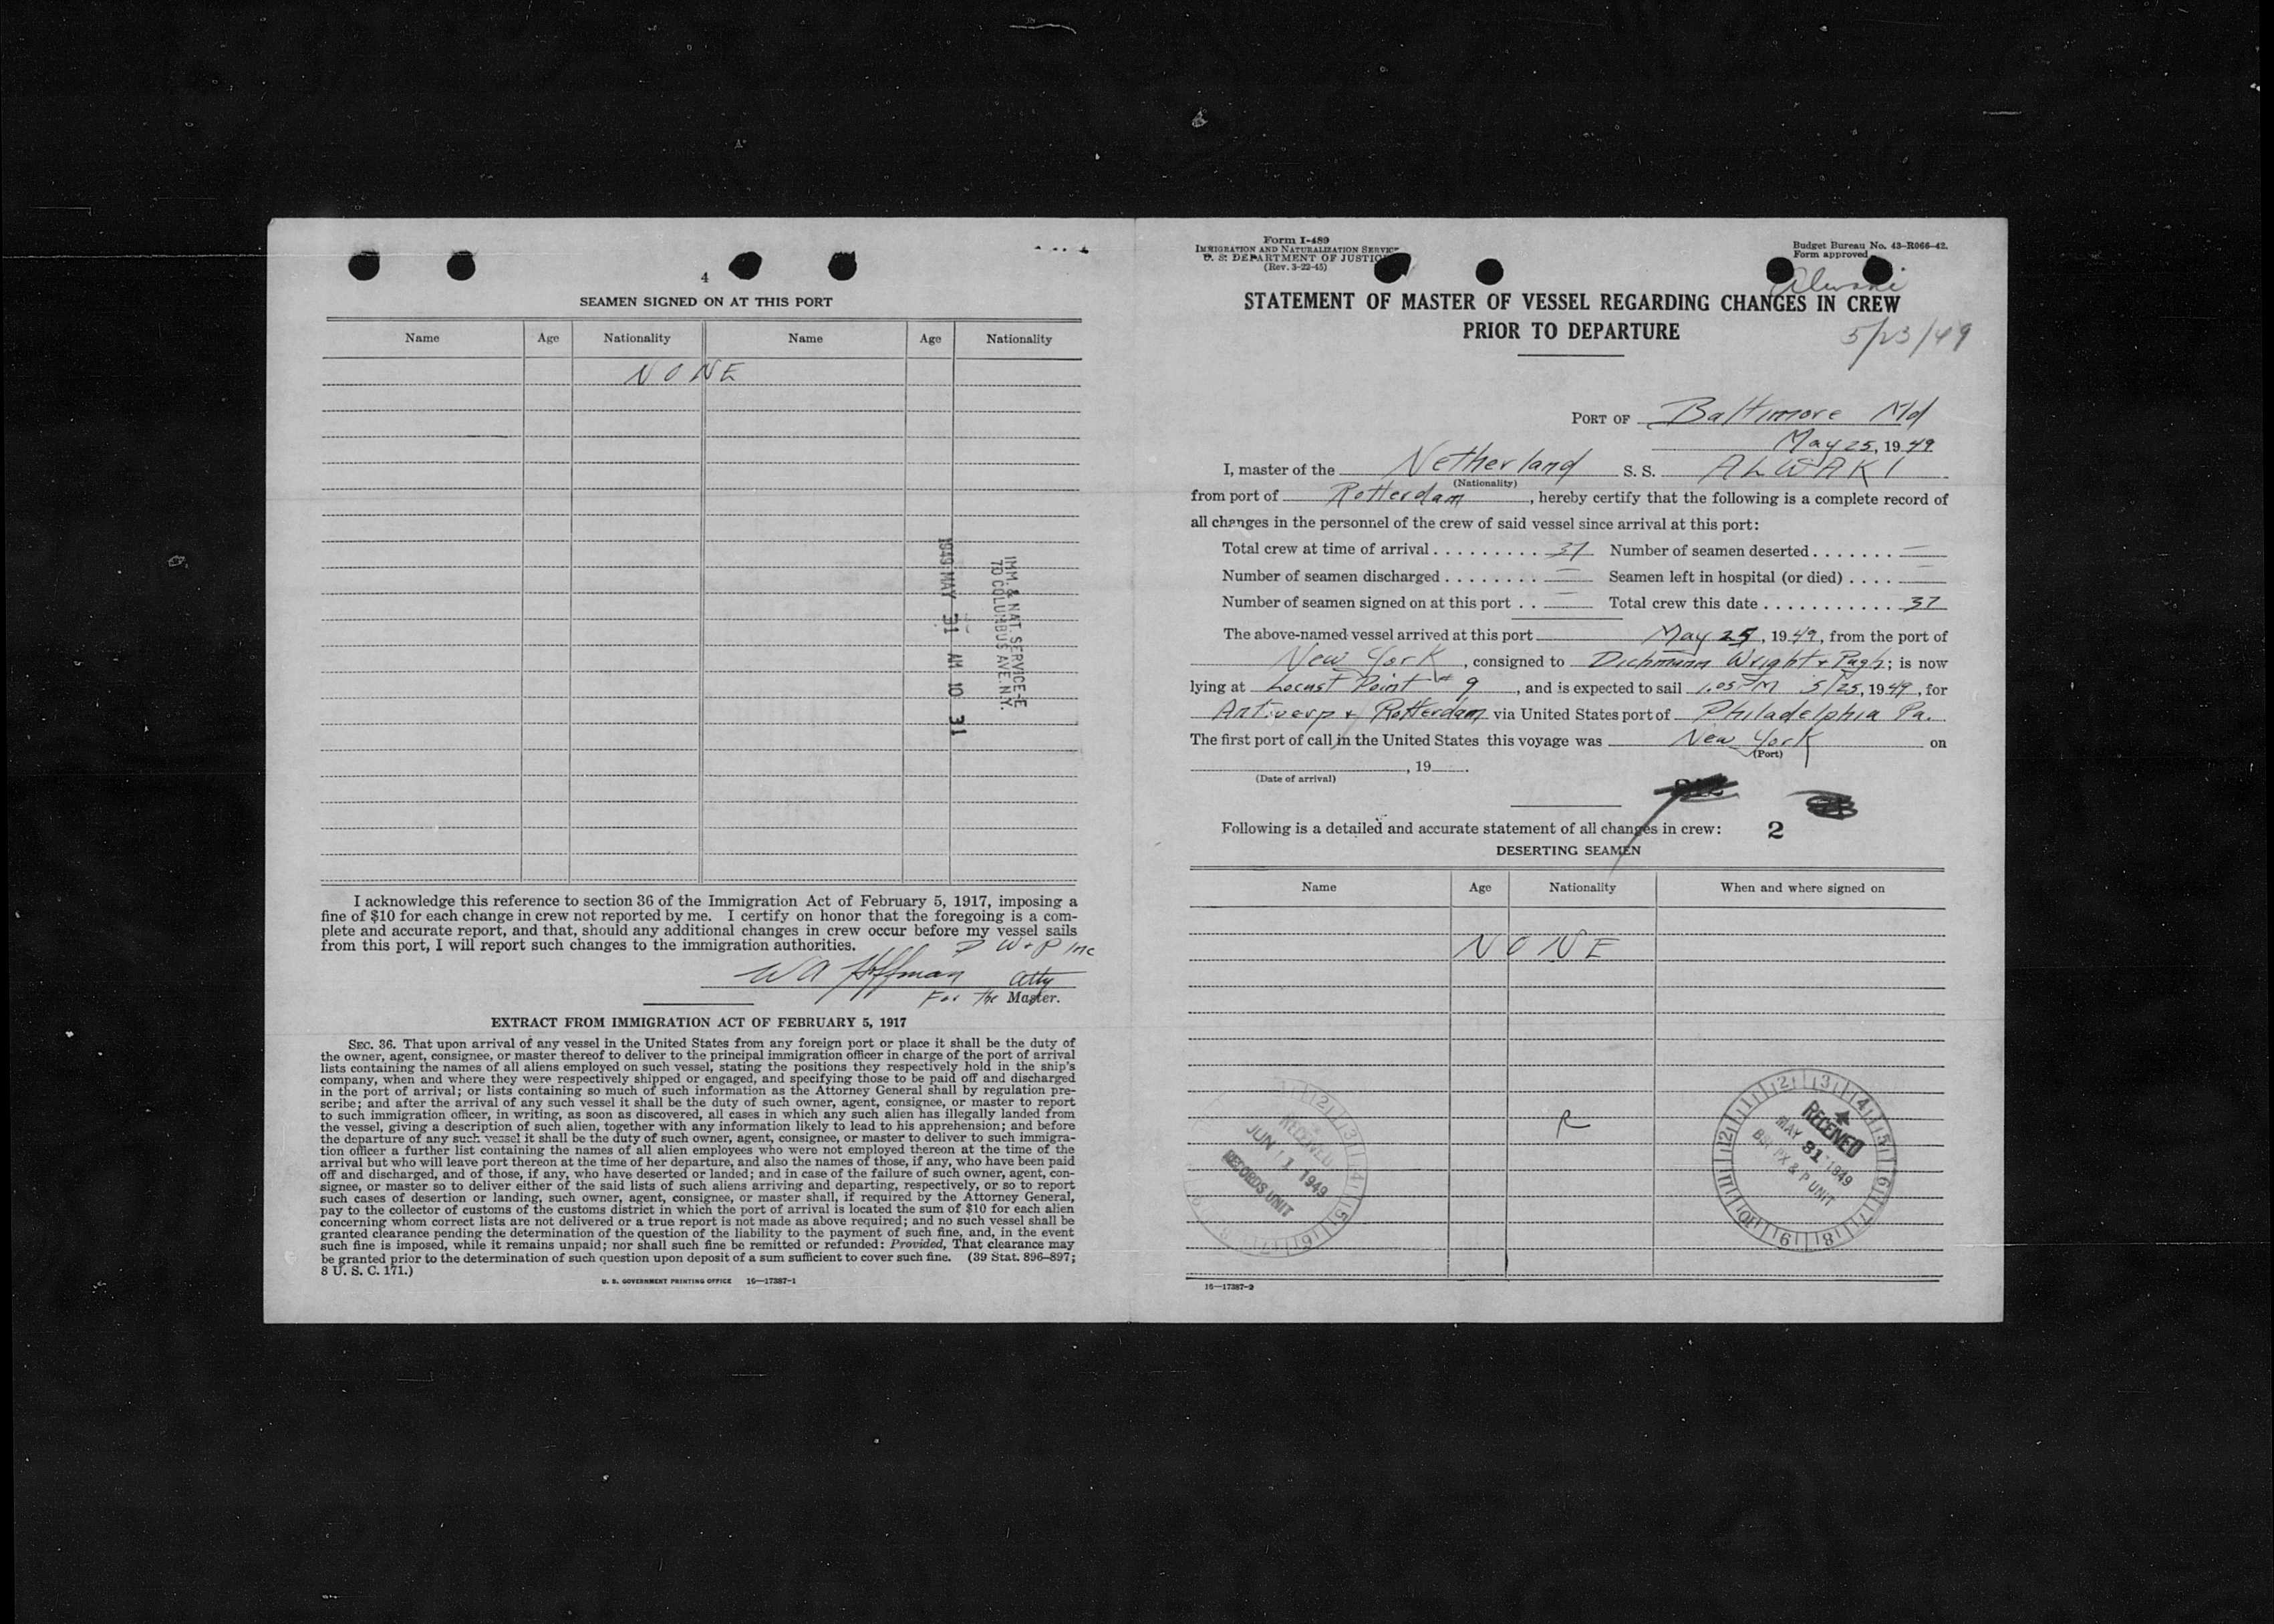 4
SEAMEN SIGNED ON AT THIS PORT
Name Age Nationality Name Age Nationality
NONE
IMM. & NAT SERVICE-E
70 COLUMBUS AVE. N.Y.
1949 MAY 31 AM 10 31
I acknowledge this reference to section 36 of the Immigration Act of February 5, 1917, imposing a
fine of $10 for each change in crew not reported by me. I certify on honor that the foregoing is a com-
plete and accurate report, and that, should any additional changes in crew occur before my vessel sails
from this port, I will report such changes to the immigration authorities.
D W & P Inc
W A Hoffman Atty
For the Master.
EXTRACT FROM IMMIGRATION ACT OF FEBRUARY 5, 1917
SEC. 36. That upon arrival of any vessel in the United States from any foreign port or place it shall be the duty of
the owner, agent, consignee, or master thereof to deliver to the principal immigration officer in charge of the port of arrival
lists containing the names of all aliens employed on such vessel, stating the positions they respectively hold in the ship's
company, when and where they were respectively shipped or engaged, and specifying those to be paid off and discharged
in the port of arrival; or lists containing so much of such information as the Attorney General shall by regulation pre-
scribe; and after the arrival of any such vessel it shall be the duty of such owner, agent, consignee, or master to report
to such immigration officer, in writing, as soon as discovered, all cases in which any such alien has illegally landed from
the vessel, giving a description of such alien, together with any information likely to lead to his apprehension; and before
the departure of any such vessel it shall be the duty of such owner, agent, consignee, or master to deliver to such immigra-
tion officer a further list containing the names of all alien employees who were not employed thereon at the time of the
arrival but who will leave port thereon at the time of her departure, and also the names of those, if any, who have been paid
off and discharged, and of those, if any, who have deserted or landed; and in case of the failure of such owner, agent, con-
signee, or master so to deliver either of the said lists of such aliens arriving and departing, respectively, or so to report
such cases of desertion or landing, such owner, agent, consignee, or master shall, if required by the Attorney General,
pay to the collector of customs of the customs district in which the port of arrival is located the sum of $10 for each alien
concerning whom correct lists are not delivered or a true report is not made as above required; and no such vessel shall be
granted clearance pending the determination of the question of the liability to the payment of such fine, and, in the event
such fine is imposed, while it remains unpaid; nor shall such fine be remitted or refunded: Provided, That clearance may
be granted prior to the determination of such question upon deposit of a sum sufficient to cover such fine. (39 Stat. 896–897;
8 U. S. C. 171.)
U. S. GOVERNMENT PRINTING OFFICE 16—17387-1
Form I-489
IMMIGRATION AND NATURALIZATION SERVICE
U. S. DEPARTMENT OF JUSTICE
(Rev. 3-22-45)
Budget Bureau No. 43-R066-42.
Form approved
Alwaki
STATEMENT OF MASTER OF VESSEL REGARDING CHANGES IN CREW
PRIOR TO DEPARTURE
5/23/49
PORT OF Baltimore Md
May 25, 1949
I, master of the Netherland S. S. ALWAKI
(Nationality)
from port of Rotterdam, hereby certify that the following is a complete record of
all changes in the personnel of the crew of said vessel since arrival at this port:
Total crew at time of arrival . . . . . . . . . 37 Number of seamen deserted . . . . . . . —
Number of seamen discharged . . . . . . . . — Seamen left in hospital (or died) . . . . —
Number of seamen signed on at this port . . — Total crew this date . . . . . . . . . . . . 37
The above-named vessel arrived at this port May 25, 1949, from the port of
New York, consigned to Dichmann Wright & Pugh; is now
lying at Locust Point # 9, and is expected to sail 1.05 PM 5/25, 1949, for
Antwerp & Rotterdam via United States port of Philadelphia Pa.
The first port of call in the United States this voyage was New York on
(Port)
, 19 .
(Date of arrival)
Following is a detailed and accurate statement of all changes in crew: 2
DESERTING SEAMEN
Name Age Nationality When and where signed on
NONE
R
RECEIVED
JUN 11 1949
RECORDS UNIT
RECEIVED
MAY 31 1949
BSI PX & P UNIT
16—17387-2